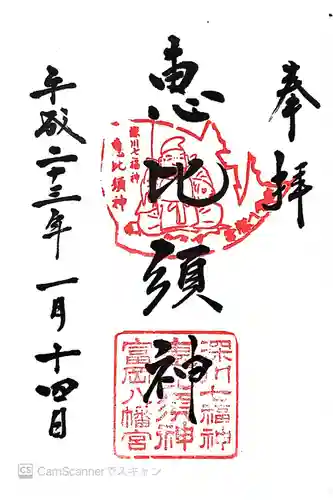 奉拝
深川七福神
恵比須神
恵比須神
深川七福神
恵比須神
富岡八幡宮
平成二十三年一月十四日
CS CamScannerでスキャン